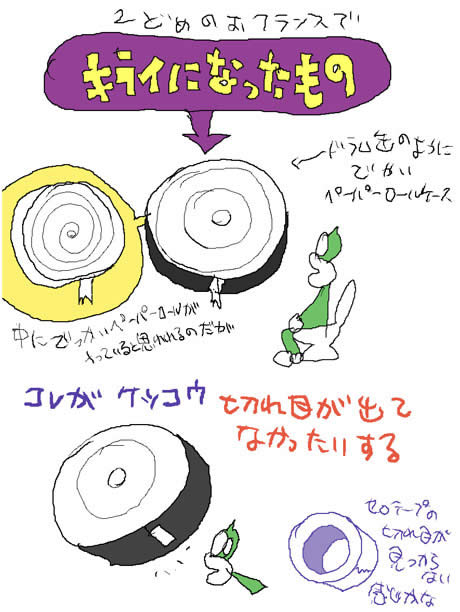 2どめのおフランスで
キライになったもの
ドラム缶のように
でかい
ペーパーロールケース
中にでっかいペーパーロールが
入っていると思われるのだが
コレが ケッコウ
切れ目が出て
なかったりする
セロテープの
切れ目が
見つから
ない
感じかな